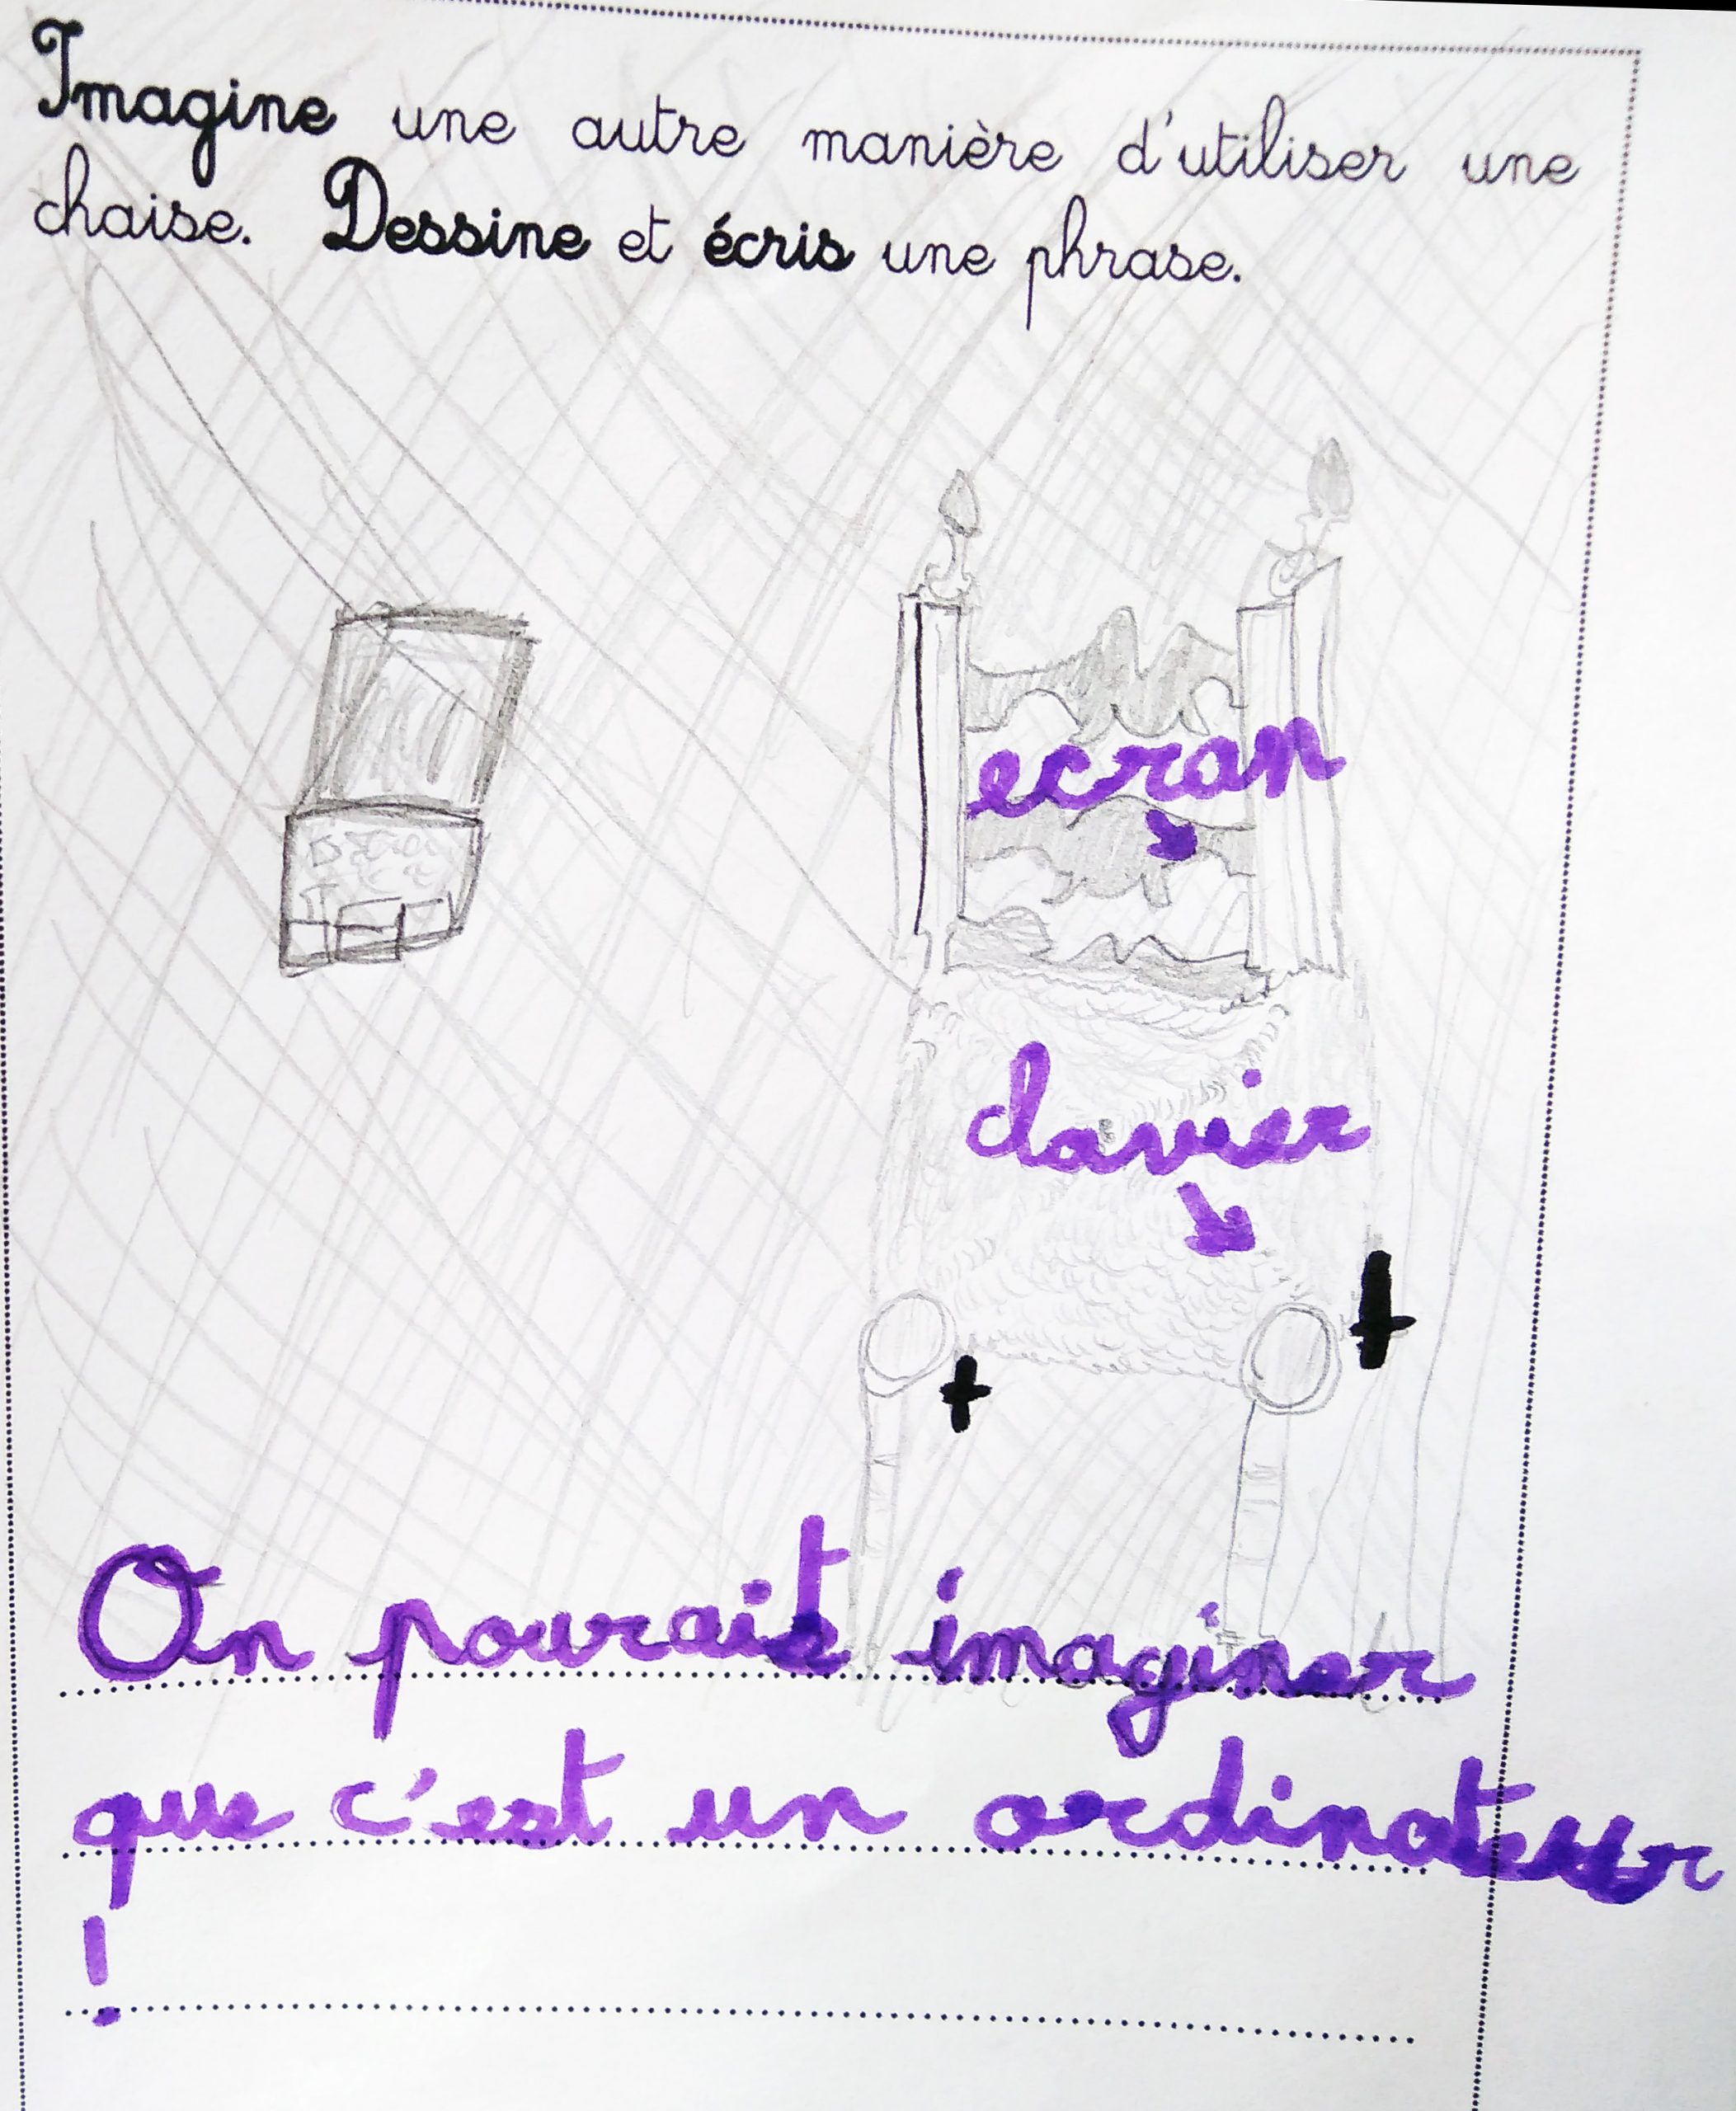 Imagine une autre manière d'utiliser une
chaise. Dessine et écris une phrase.
ecran
clavier
On pourait imaginer
que c'est un ordinateur
!